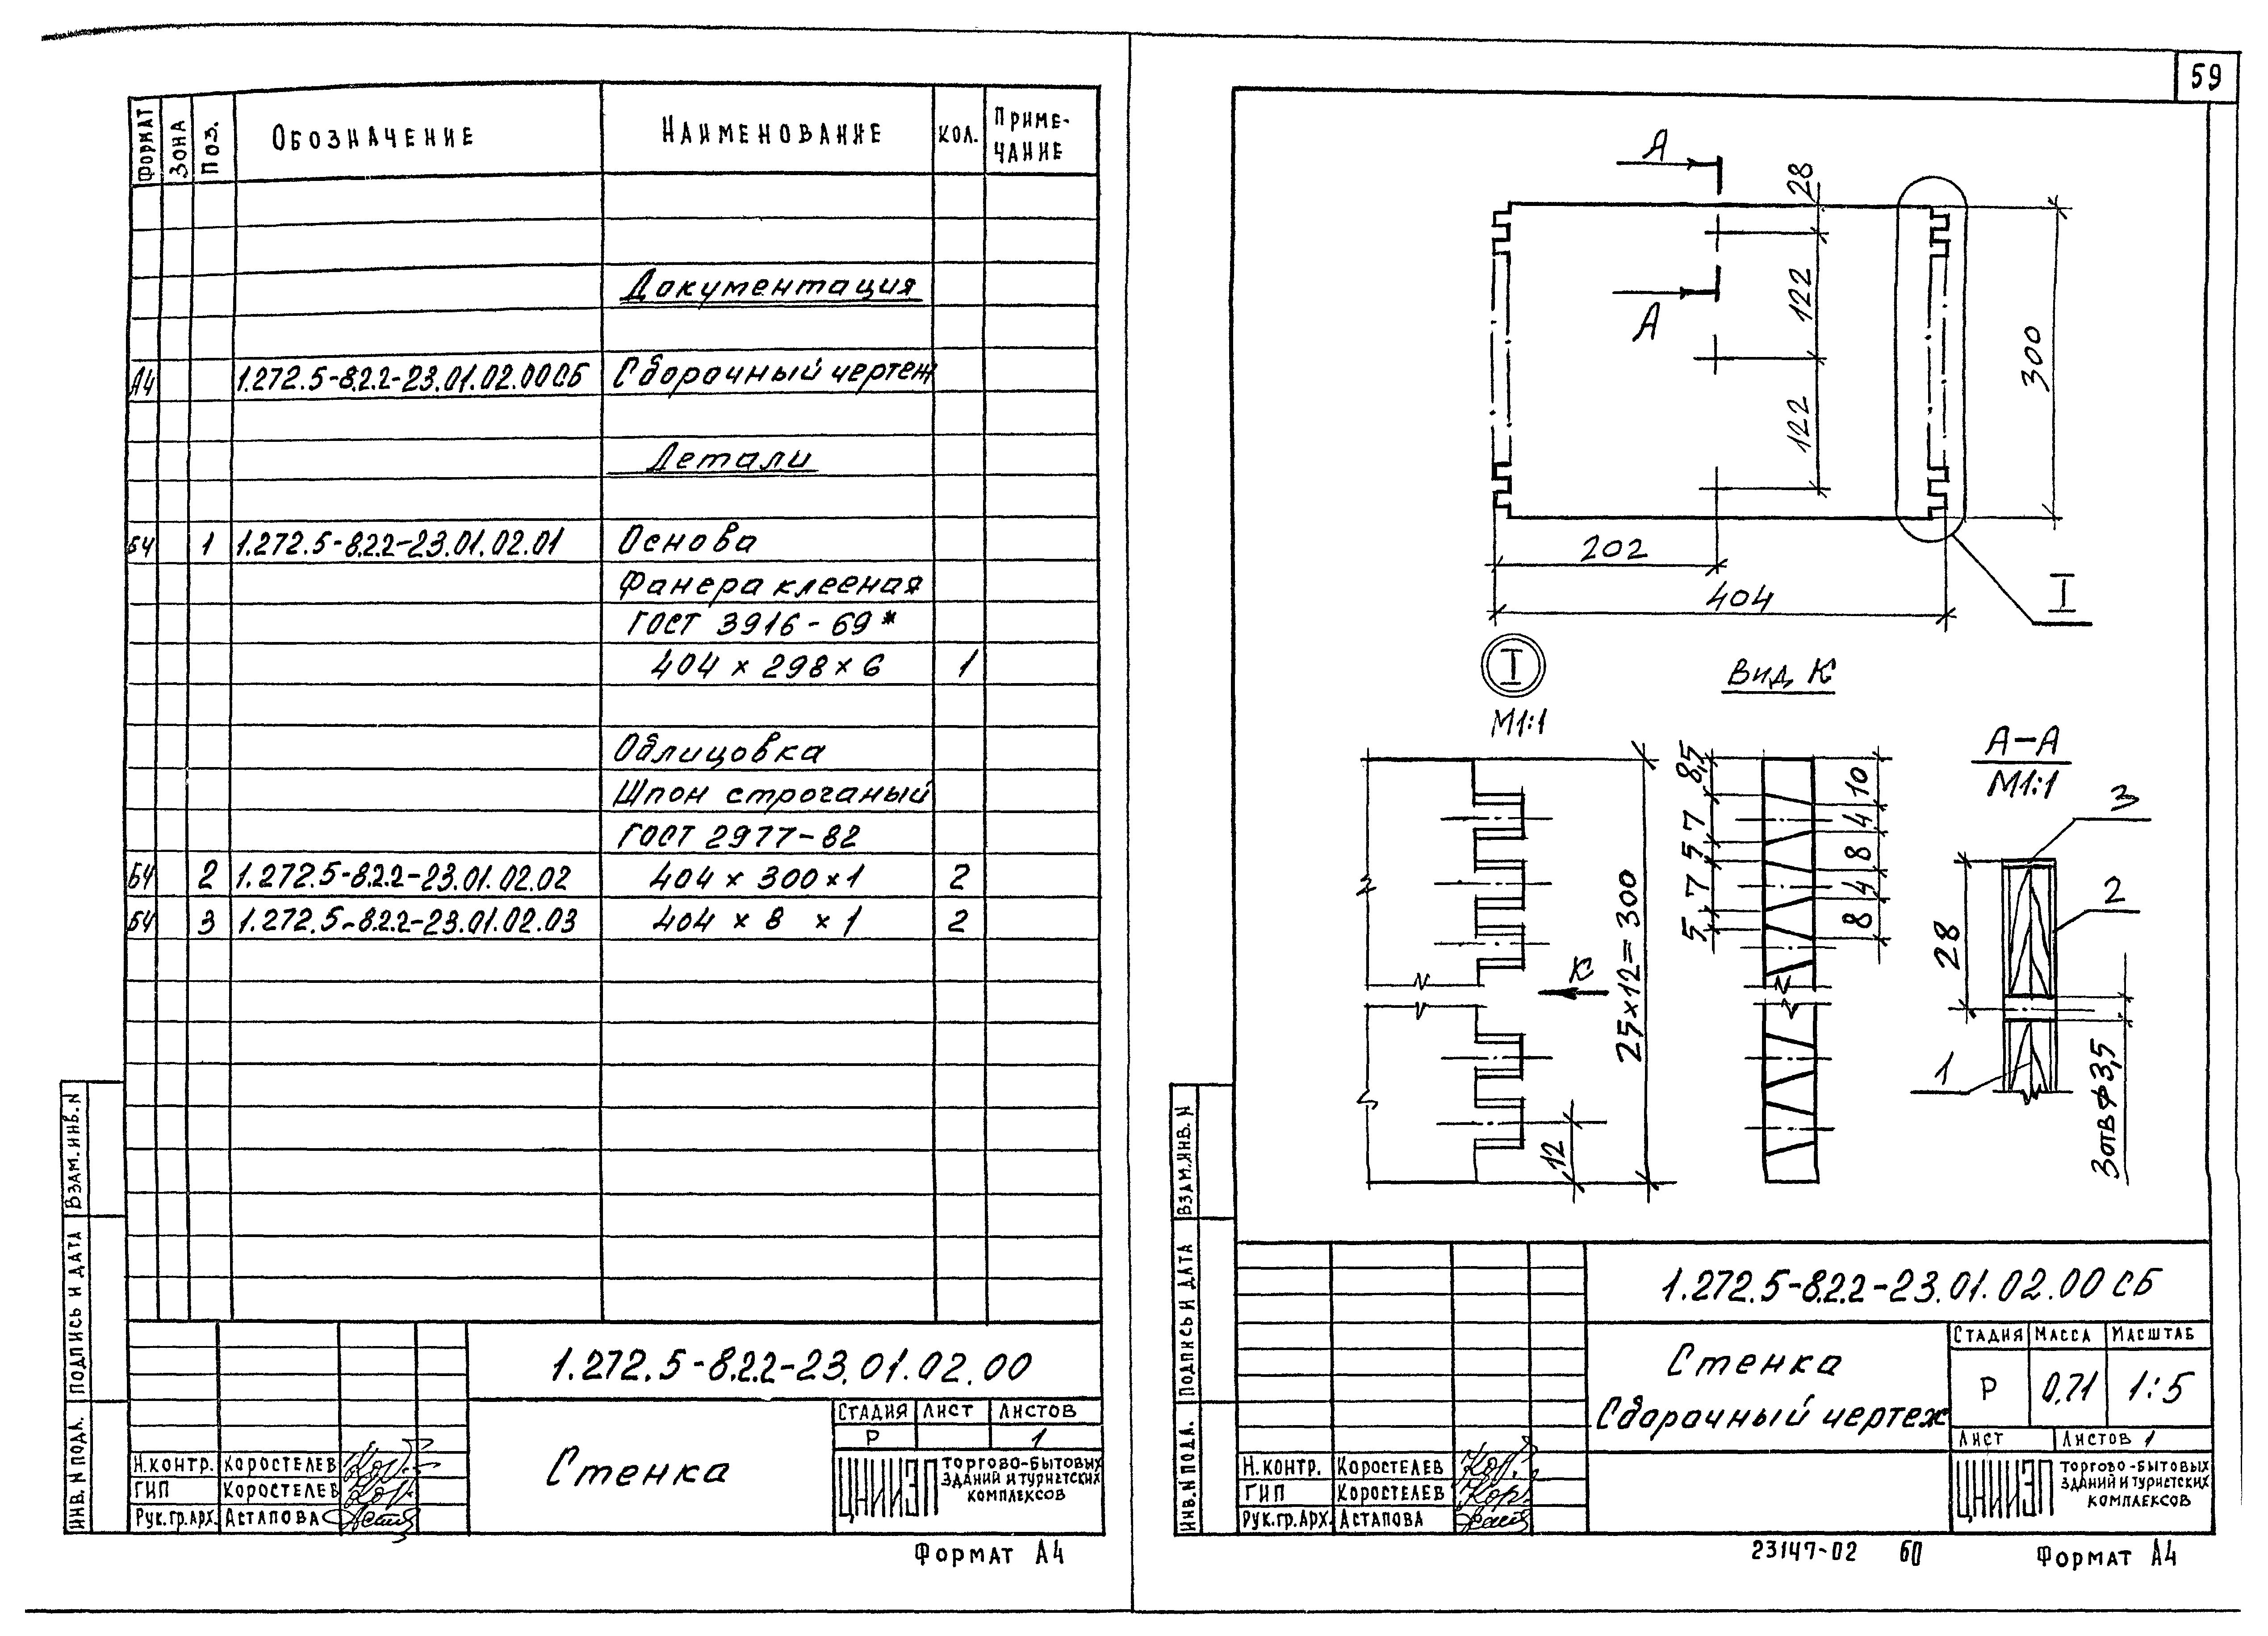 Формат
Зона
Поз.
Обозначение
Наименование
Кол.
Приме-
чание
Документация
А4 1.272.5-8.2.2-23.01.02.00СБ Сборочный чертеж
Детали
БЧ 1 1.272.5-8.2.2-23.01.02.01 Основа
Фанера клееная
ГОСТ 3916-69*
404 × 298 × 6 1
Облицовка
Шпон строганый
ГОСТ 2977-82
БЧ 2 1.272.5-8.2.2-23.01.02.02 404 × 300 × 1 2
БЧ 3 1.272.5-8.2.2-23.01.02.03 404 × 8 × 1 2
Взам. инв. N
Подпись и дата
Инв. N подл.
1.272.5-8.2.2-23.01.02.00
Стенка
Стадия Лист Листов
Р 1
ЦНИИЭП
торгово-бытовых
зданий и туристских
комплексов
Н.контр. Коростелев
ГИП Коростелев
Рук.гр.арх. Астапова
Формат А4
59
А
А
28
122
122
300
202
404
I
I
М1:1
Вид К
А-А
М1:1
8,5
7
5
7
5
10
4
8
4
8
К
25×12=300
12
3
2
1
28
3отв ф3,5
Взам. инв. N
Подпись и дата
Инв. N подл.
1.272.5-8.2.2-23.01.02.00 СБ
Стенка
Сборочный чертеж
Стадия Масса Масштаб
Р 0,71 1:5
Лист Листов 1
ЦНИИЭП
торгово-бытовых
зданий и туристских
комплексов
Н.контр. Коростелев
ГИП Коростелев
Рук.гр.арх. Астапова
23147-02 60 Формат А4